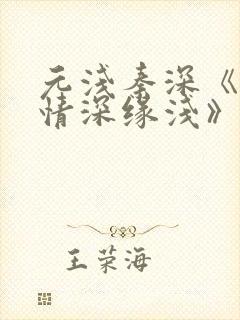 元浅秦深《
情深缘浅》
王荣海